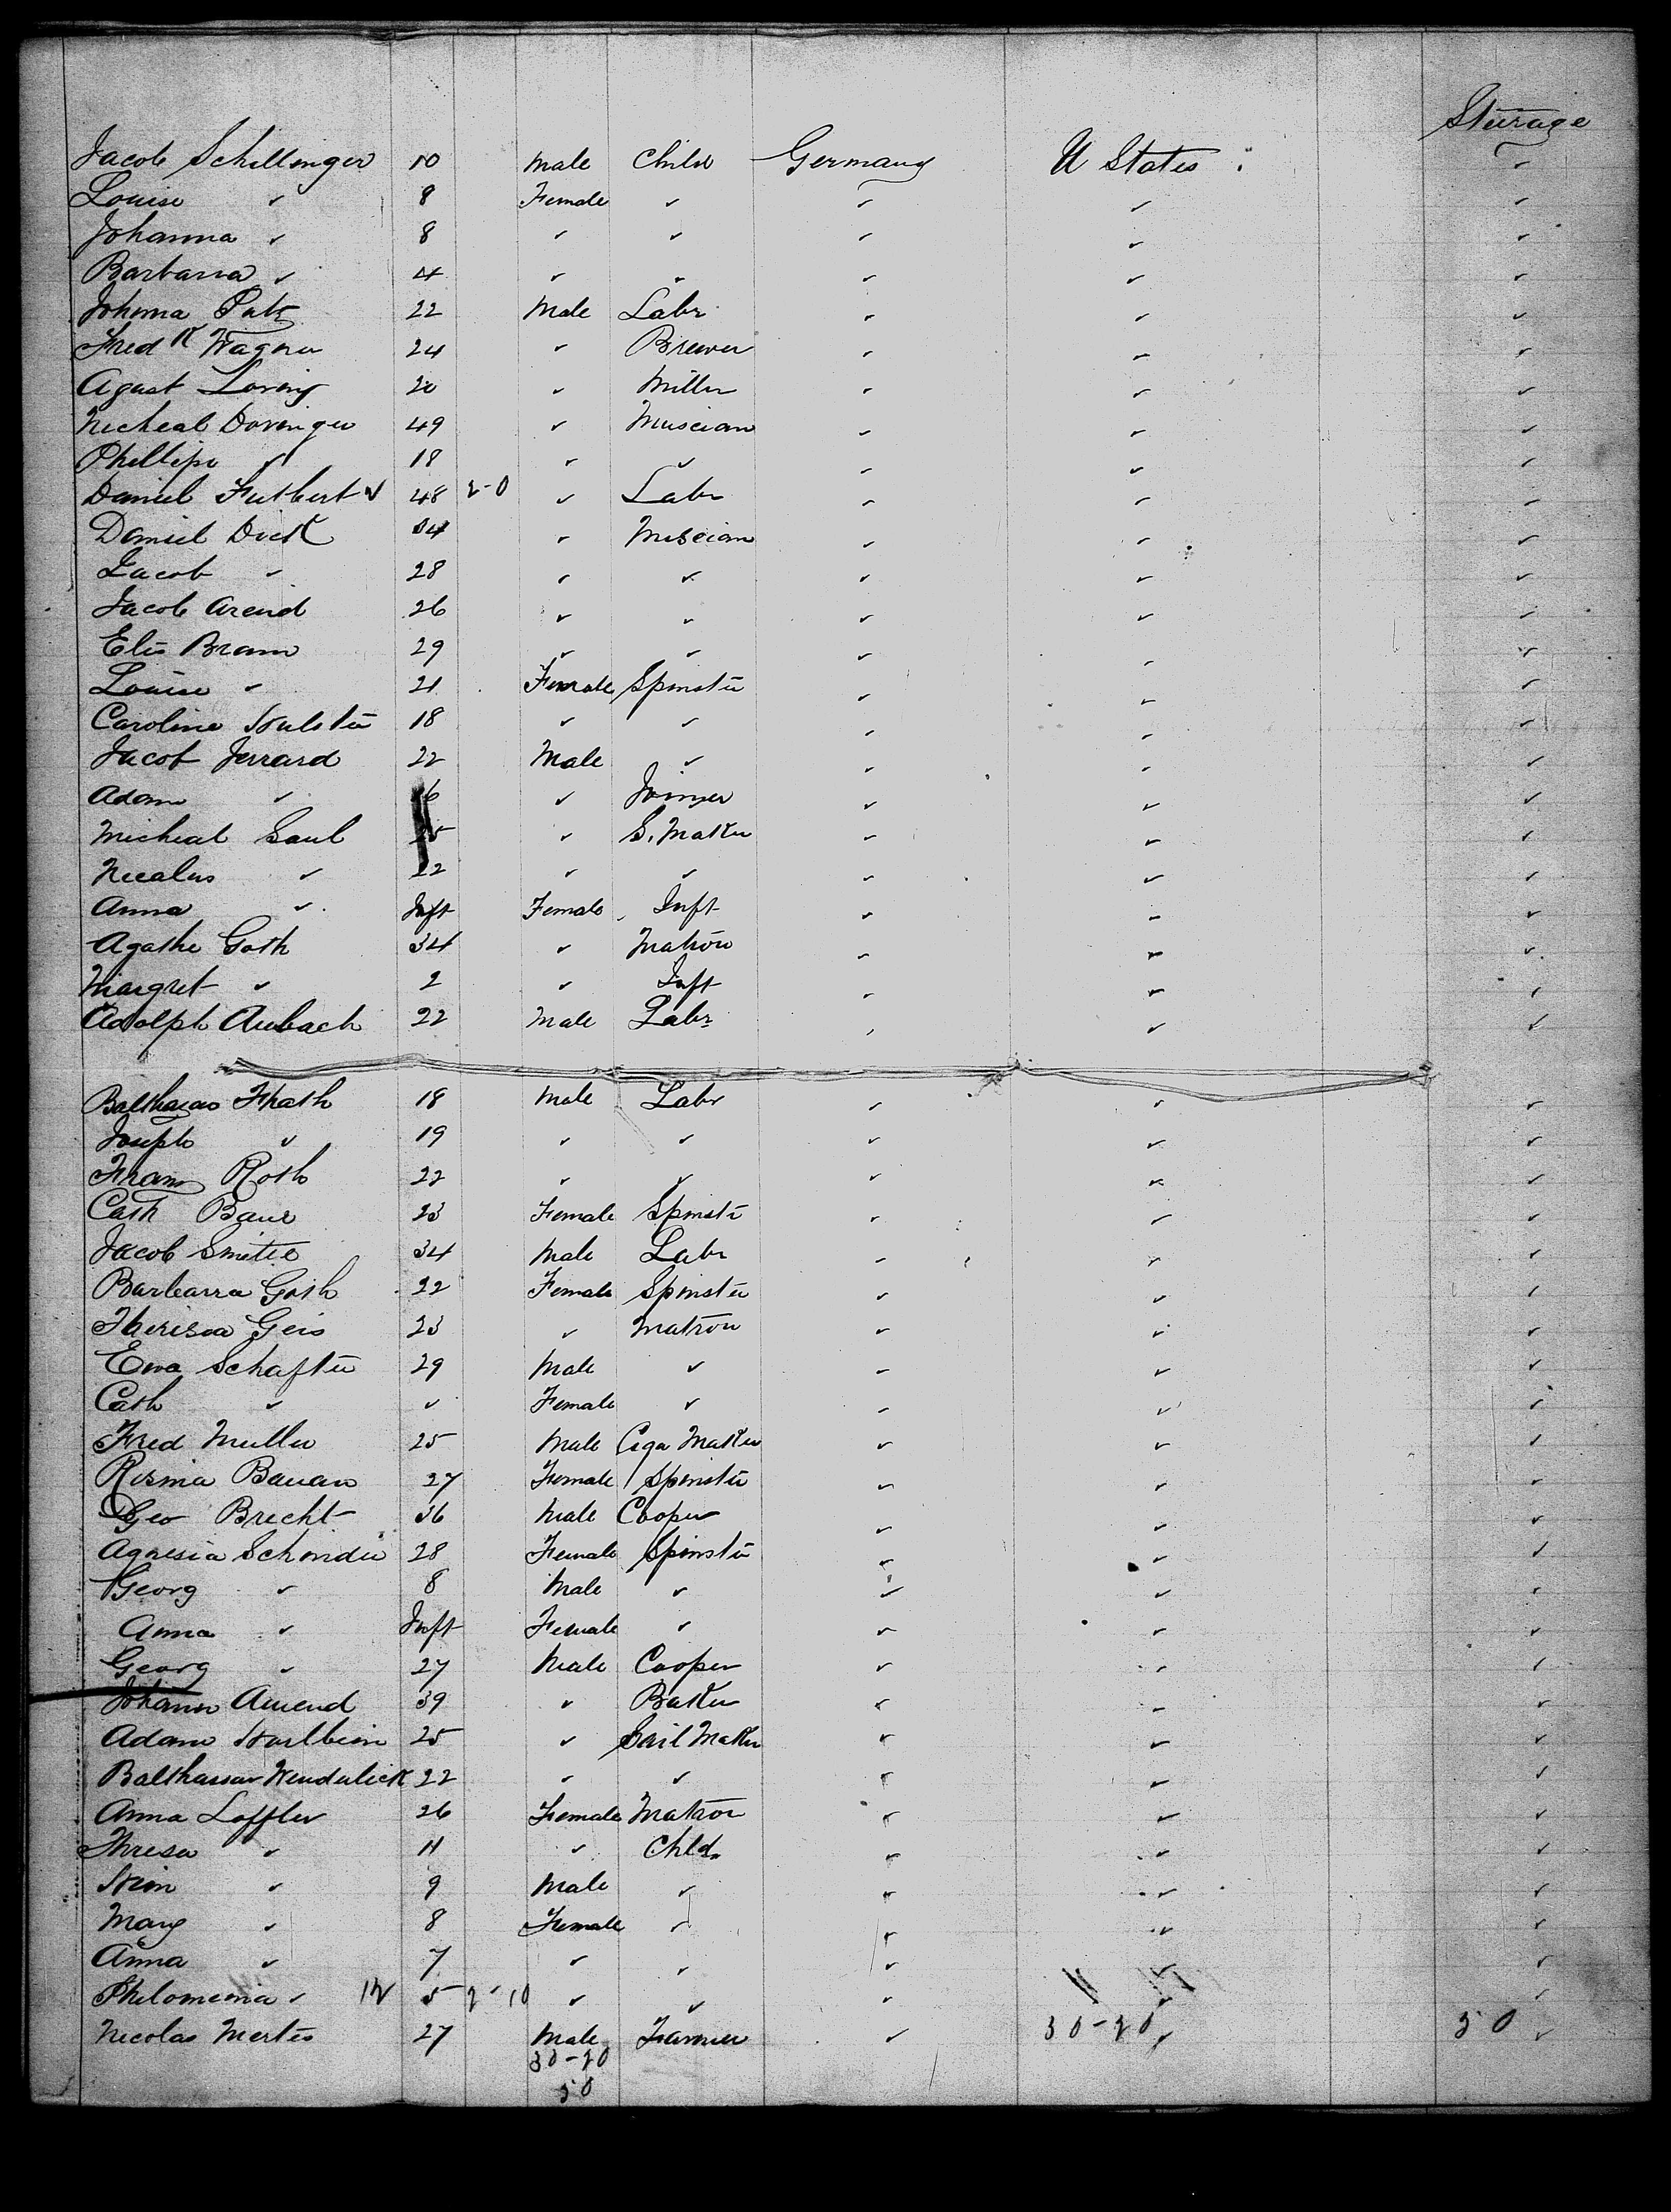 Steerage
Jacob Schillinger 10 Male Child Germany U States
Louise " 8 Female " " " "
Johanna " 8 " " " " "
Barbarra " 4 " " " " "
Johnna 22 Male Labr " " "
Fred K Wagner 24 " Brewer " " "
Agust Loring 20 " Miller " " "
Micheal Doringer 49 " Muscian " " "
Phillipe " 18 " " " " "
Daniel Futhert 48 2-0 " Labr " " "
Daniel Dick 34 " Muscian " " "
Jacob " 28 " " " " "
Jacob Arend 26 " " " " "
Elis Bram 29 " " " " "
Louise " 21 Female Spinster " " "
Caroline 18 " " " " "
Jacob Jerrard 22 Male " " " "
Adam " 16 " Joiner " " "
Micheal Saul 25 " S. Maker " " "
Necalus " 22 " " " " "
Anna " Inft Female Inft " " "
Agathe Goth 34 " Matron " " "
Margret " 2 " Inft " " "
Adolph Aubach 22 Male Labr " " "
Balthasar Fhath 18 Male Labr " " "
Joseph " 19 " " " " "
Franz Roth 22 " " " " "
Cath Baur 23 Female Spinstr " " "
Jacob 34 Male Labr " " "
Barbarra Goth 22 Female Spinster " " "
Therisea Geis 23 " Matron " " "
Eva Schafter 29 Male " " " "
Cath " " Female " " " "
Fred Muller 25 Male Ciga Maker " " "
Rosina Bauan 27 Female Spinster " " "
Geo Brecht 36 Male Cooper " " "
Agnesia Schnider 28 Female Spinster " " "
Georg " 8 Male " " " "
Anna " Inft Female " " " "
Georg " 27 Male Cooper " " "
Johann Amend 39 " Baker " " "
Adam 25 " Sail Maker " " "
Balthassar Wendelick 22 " " " " "
Anna Loffler 26 Female Matron " " "
Thresa " 11 " Chld. " " "
" 9 Male " " " "
Mary " 8 Female " " " "
Anna " 7 " " " " "
Philomenia " 12 5 2-10 " " " " "
Necolas Mertes 27 Male Farmer " 30-20 " 50 "
30-20
50